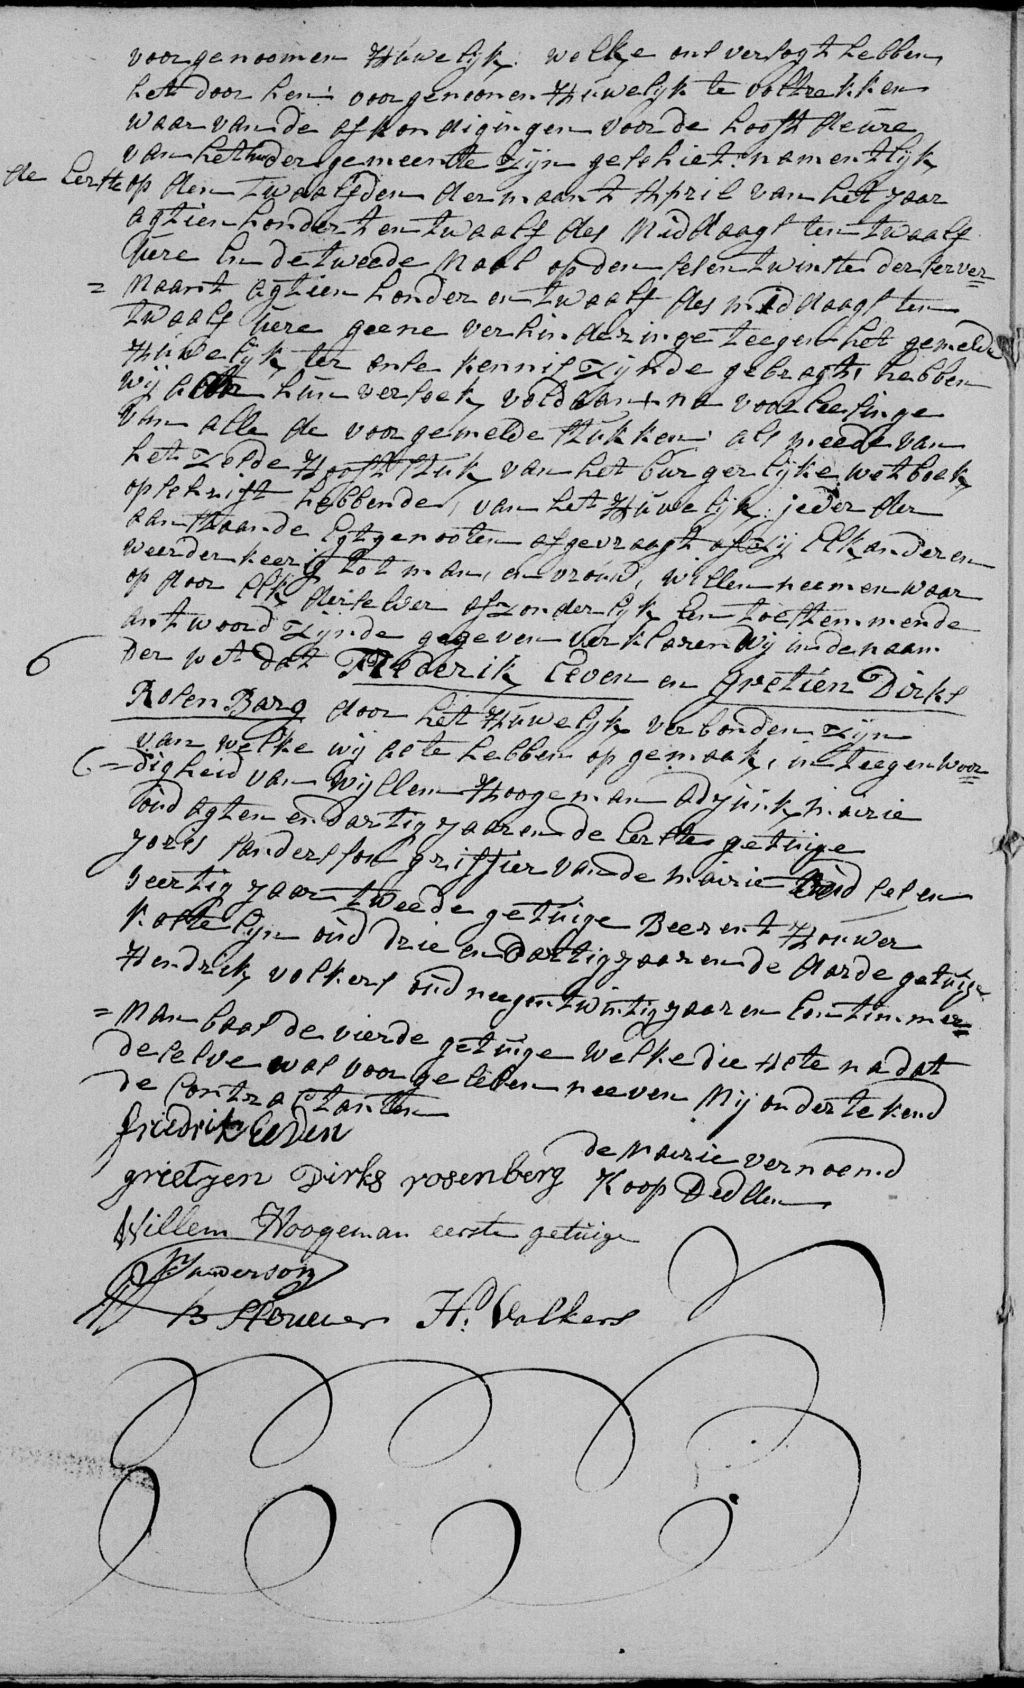 voorgenoomen Huwelijk: welke ons versogt hebben
het door hen: voorgenoomen Huwelijk te voltrekken
waar van de afkondigingen voor de hooft deure
van het der gemeente zijn geschiet: namentlijk
de Eerste op den twaalfden der maant April van het jaar
agtien hondert en twaalf des Middaags ten twaalf
Uere En de tweede Maal op den sesentwinste der selver
= Maant agtien honder en twaalf des middaags ten
twaalf Uere geene verhinderinge teegen het gemelde
Huwelijk ter onse kennis zijnde gebragt, hebben
wij aan hun versoek voldaan + na voorleesinge
van alle de voorgemelde stukken: als meede van
het zesde Hooftstuk van het burgerlijke wetboek
opschrift hebbende, van het Huwelijk: jeder der
aanstaande Egtgenooten afgevraagt of zij Elkanderen
weerderkeerig tot man, en vrouw, willen neemen waar
op door Elk derselver afzonderlijk Een toestemmende
antwoord zijnde gegeven verklaren Wij in de naam
6 Der wet dat Frederik Eeven en Gretien Dirks
Rosen Barg door het Huwelijk verbonden zijn
van welke wij acte hebben op gemaak, in teegenwoor
digheid van Wjllem Hoogeman adjunk mairie
oud agten en dartig jaaren de Eerste getuige
joris Sanderson griffier van de mairie oud sesen
veertig jaar tweede getuige Beerent Houwer
Kastelijn oud drie en Dartig jaaren de darde getuige
Hendrik volkers oud neegentwintig jaaren Een timmer
= Man baas de vierde getuige Welke die Acte na dat
deselve was voorgelesen neeven Mij ondertekend
de Contractanten
friedrik Eeven
de Mairie vernoemd
grietjen Dirks rosenberg Koop Dedden
Willem Hoogeman eerste getuige
Sanderson
B Houwer H. Volkers